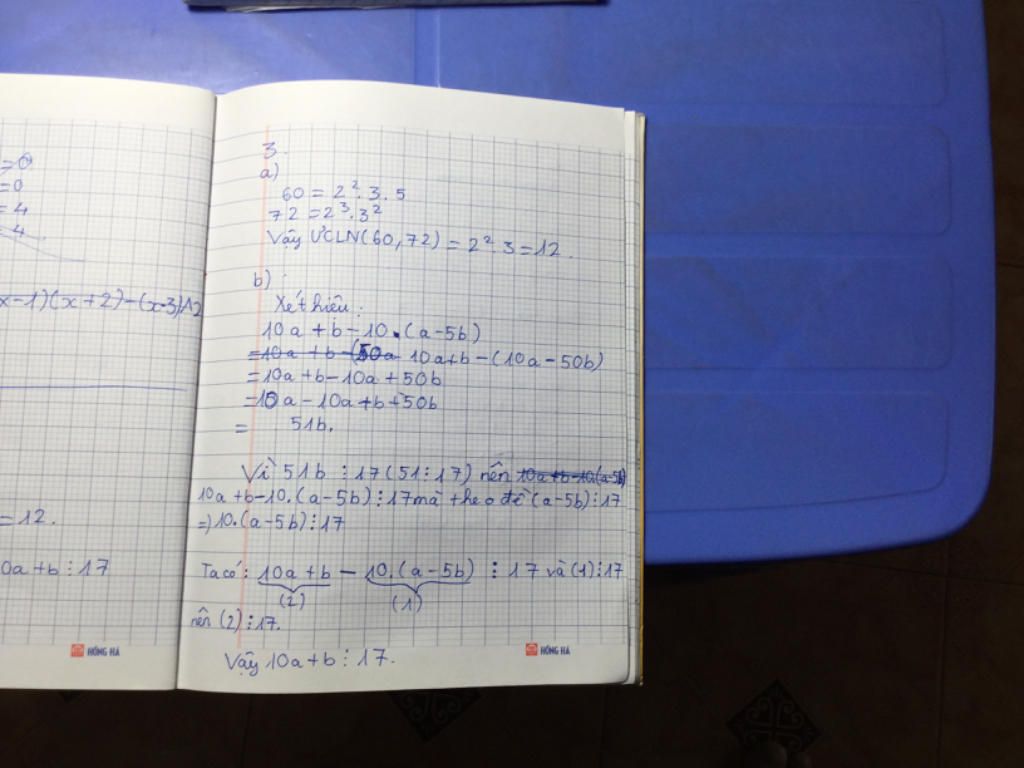 =0
=0
=4
=4
x-1)(x+2)-(x-3)12
=12.
0a+b⋮17
HỒNG HÀ
3.
a)
60 = 2². 3. 5
72 = 2³. 3²
Vậy ƯCLN(60,72) = 2². 3 = 12.
b)
Xét hiệu:
10a + b - 10.(a-5b)
=10a + b -(50a 10a+b-(10a-50b)
=10a+b-10a+50b
=10a-10a+b+50b
= 51b.
Vì 51b ⋮17(51⋮17) nên 10a+b-10.(a-5b)
10a+b-10.(a-5b)⋮17 mà theo đề (a-5b)⋮17
=) 10.(a-5b)⋮17
Ta có: 10a+b - 10.(a-5b) ⋮ 17 và (1)⋮17
(2) (1)
nên (2)⋮17.
Vậy 10a+b⋮17.
HỒNG HÀ